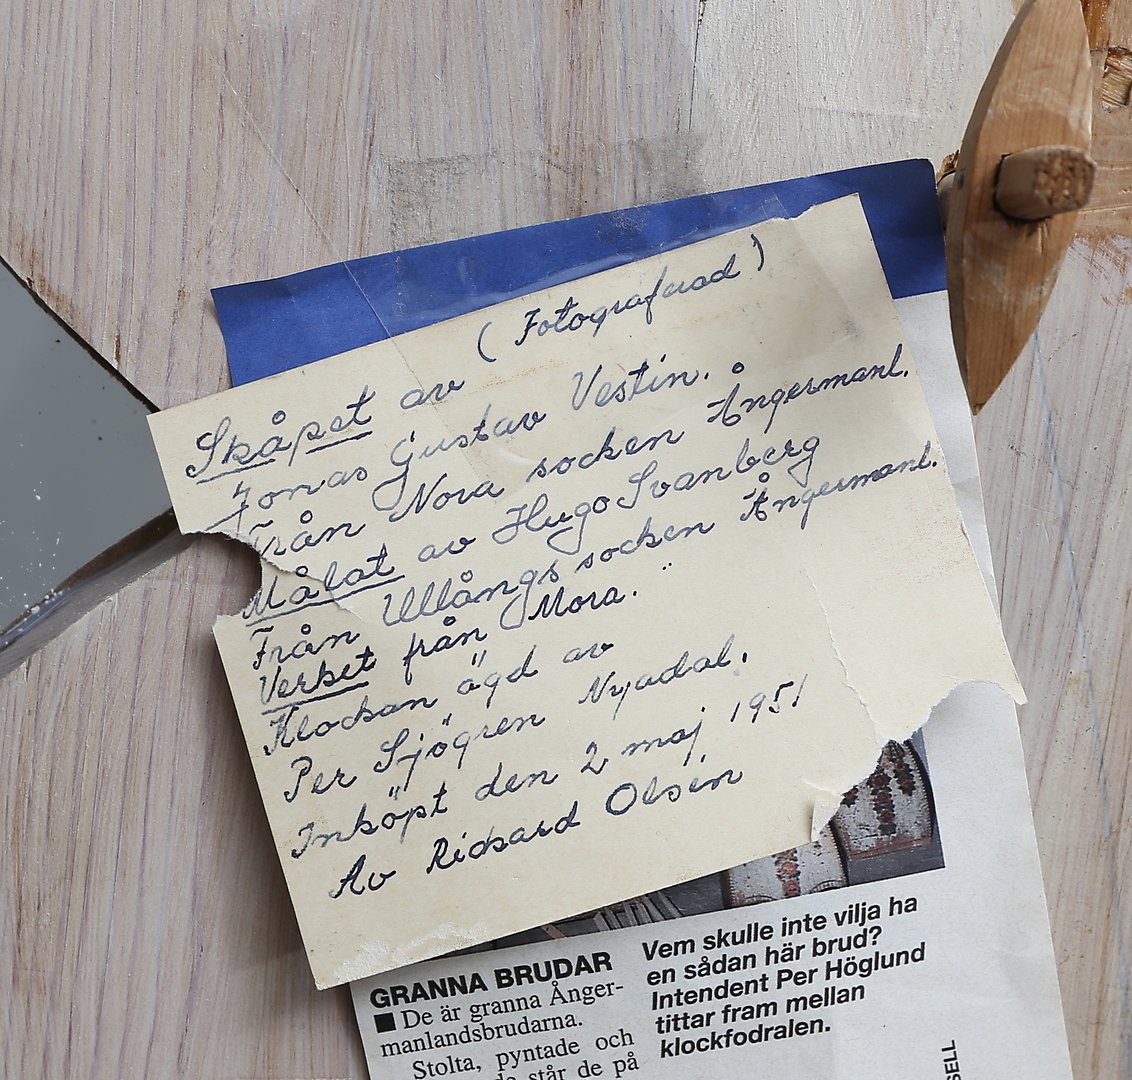 ( Fotograferad )
Skåpet av
Jonas Gustav Vestin.
Från Nora socken Ångermanl.
Målat av Hugo Svanberg
Från Ullångs socken Ångermanl.
Verket från Mora.
Klockan ägd av
Per Sjögren Nyadal.
Inköpt den 2 maj 1951
Av Rickard Olsén
GRANNA BRUDAR
■ De är granna Ånger-
manlandsbrudarna.
Stolta, pyntade och
står de på
Vem skulle inte vilja ha
en sådan här brud?
Intendent Per Höglund
tittar fram mellan
klockfodralen.
SELL